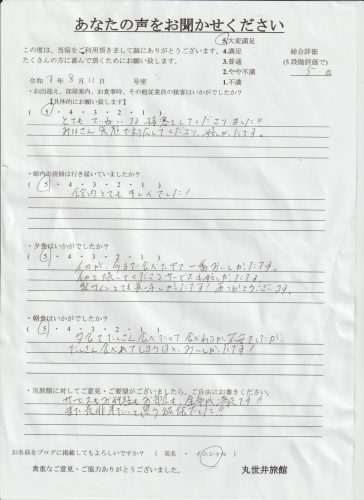 あなたの声をお聞かせください
この度は、当宿をご利用頂きまして誠にありがとうございます。
たくさんの方に喜んで頂くためにお願い致します。
5.大変満足
4.満足
3.普通
2.やや不満
1.不満
総合評価
(5段階評価で)
5 点
令和 7 年 8 月 11 日 号室
・お出迎え、部屋案内、お食事時、その他従業員の接客はいかがでしたか?
【具体的にお願い致します】
( 5 ・ 4 ・ 3 ・ 2 ・ 1 )
とてもていねいな接客をしてくださりました!!
みなさん笑顔で対応してくださり、嬉しかったです。
・館内の清掃は行き届いていましたか?
( 5 ・ 4 ・ 3 ・ 2 ・ 1 )
館内とてもキレイでした!
・夕食はいかがでしたか?
( 5 ・ 4 ・ 3 ・ 2 ・ 1 )
今まで食べた中で一番おいしかったです。
サービスも嬉しかったです。
ワインとても美味しかったです!ありがとうございます。
・朝食はいかがでしたか?
( 5 ・ 4 ・ 3 ・ 2 ・ 1 )
夕食でたくさん食べたので食べれるか不安でしたが、
たくさん食べれてしまうほど、おいしかったです!
・当旅館に対してご意見・ご要望がございましたら、ご自由にお書きください。
サービスもお料理もお部屋も、全部大満足です!!
また是非来たいと思う旅館でした!!
お名前をブログに掲載してもよろしいですか? ( 実名 ・ イニシャル )
貴重なご意見・ご協力ありがとうございました。
丸世井旅館